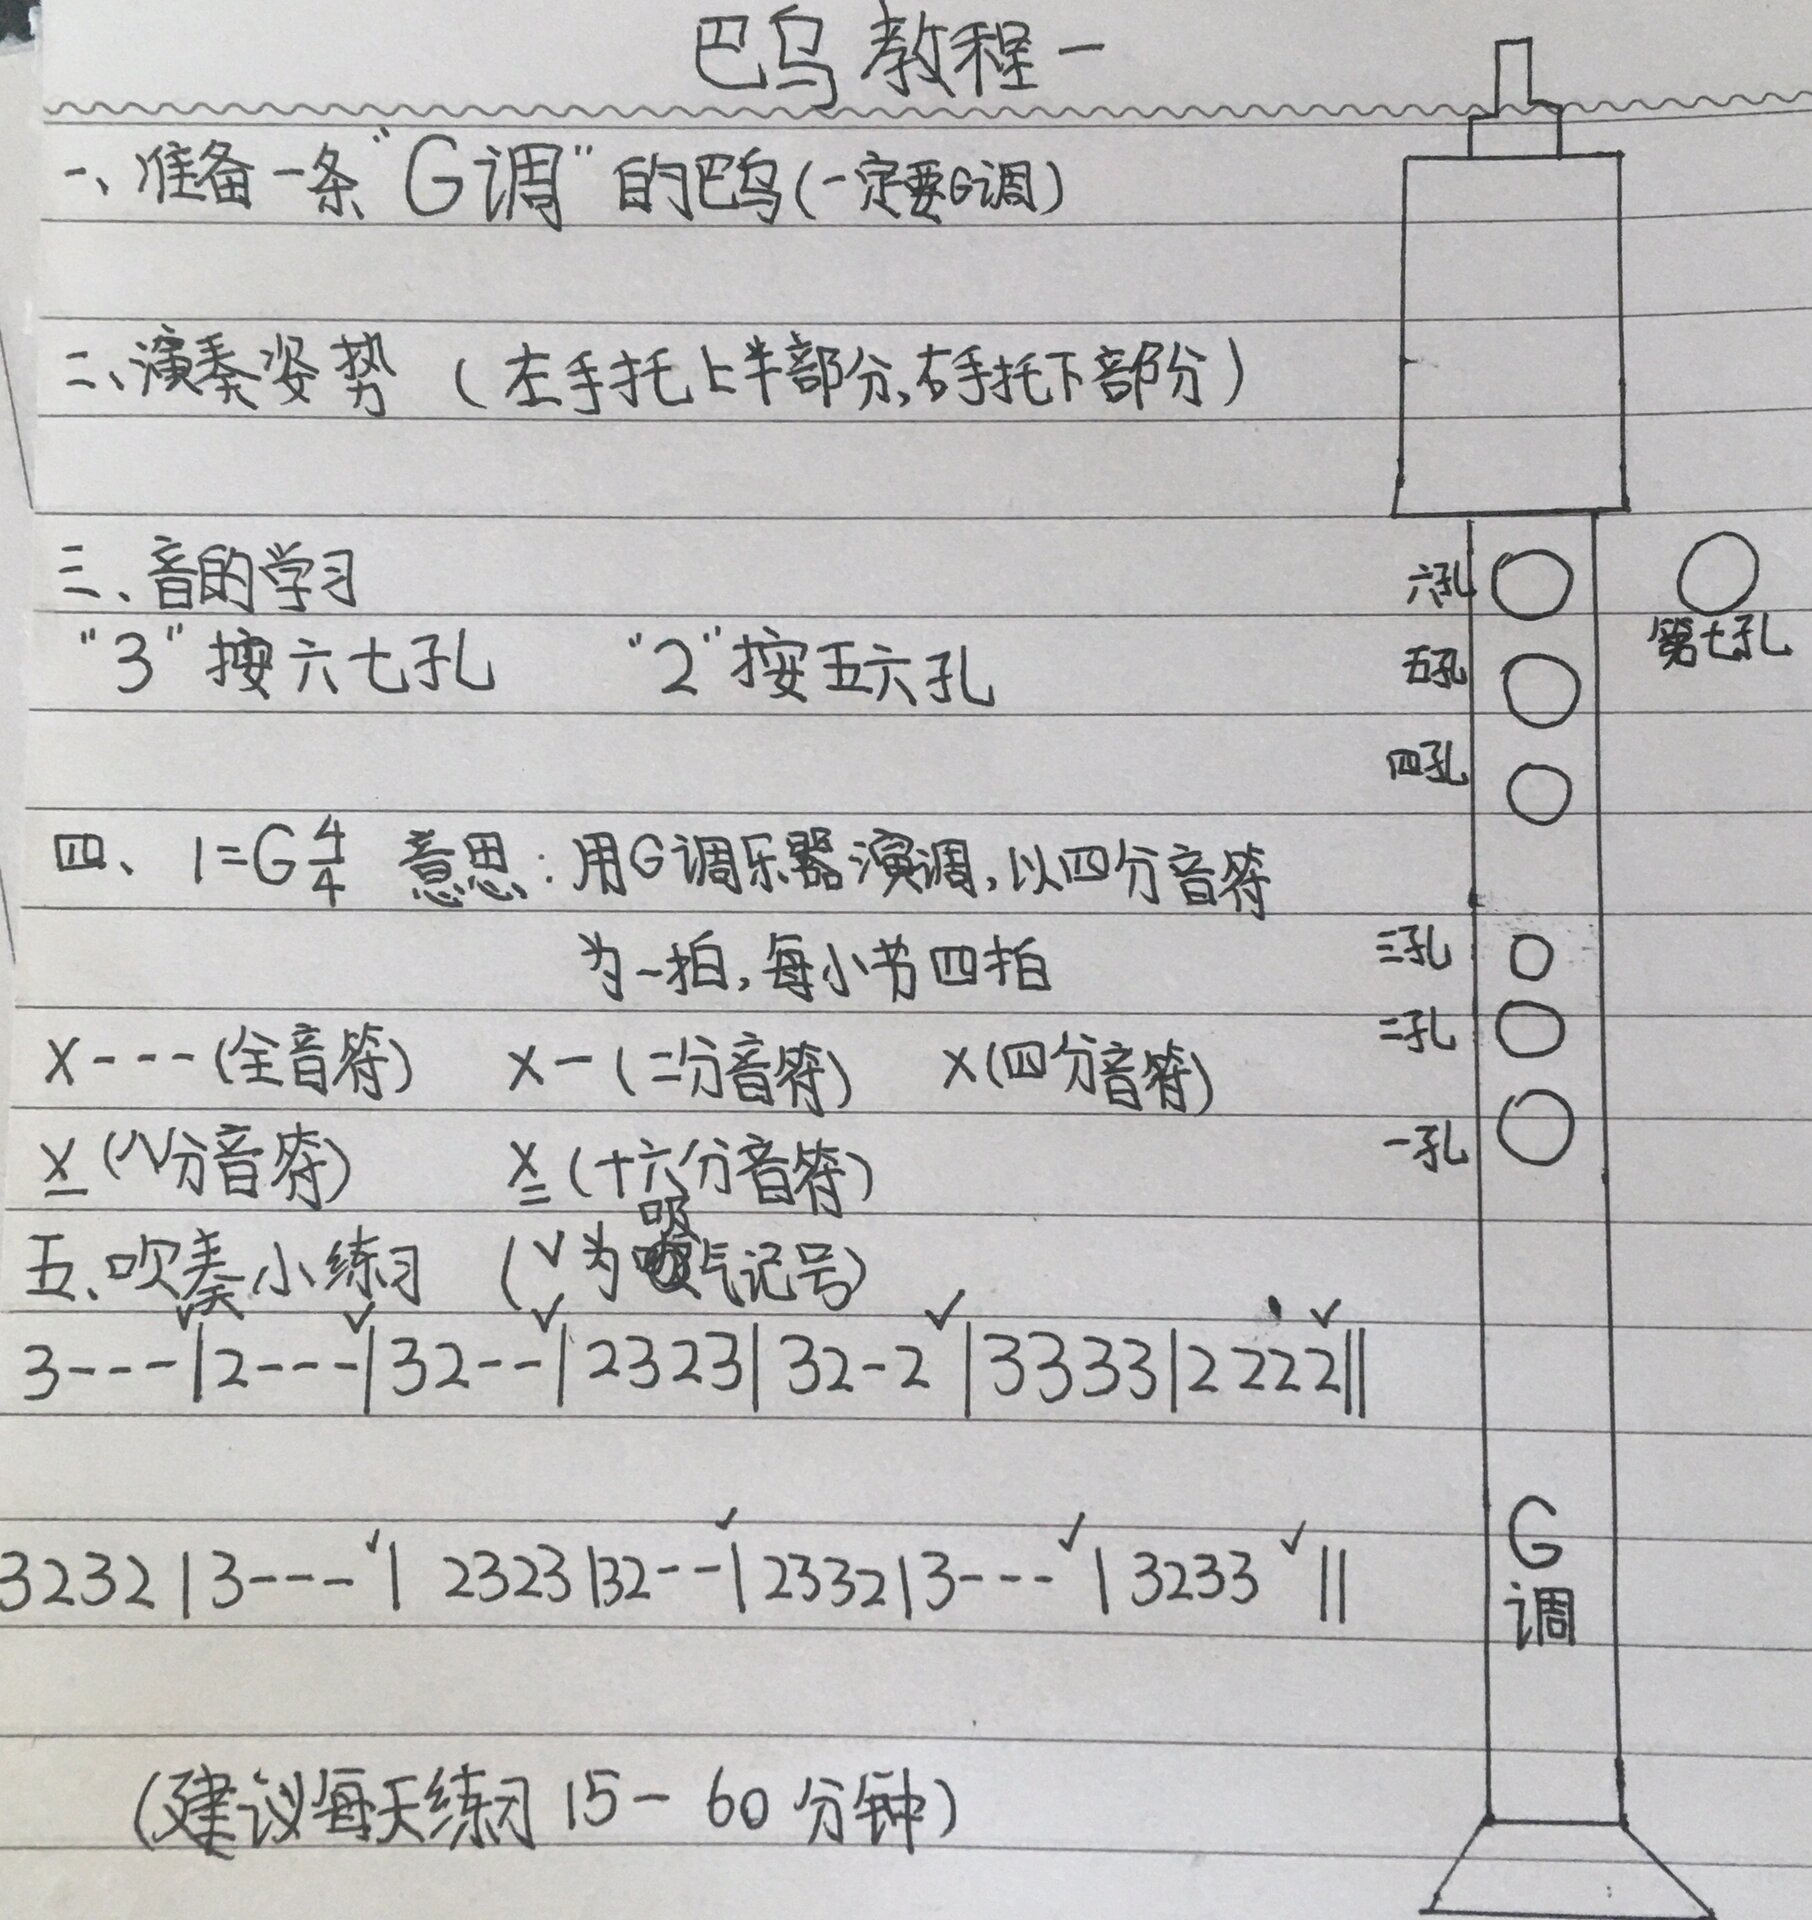 巴乌教程一
一、准备一条“G调”的巴乌(一定要G调)
二、演奏姿势 (左手托上半部分,右手托下部分)
三、音的学习
“3”按六七孔 “2”按五六孔
四、1=G 4/4 意思:用G调乐器演调,以四分音符
为一拍,每小节四拍
X---(全音符) X-(二分音符) X(四分音符)
X(八分音符) X(十六分音符)
五、吹奏小练习 (√为吸气记号)
3---√|2---√|32--√|2323|32-2√|3333|2222√||
3232|3---√|2323|32--√|2332|3---√|3233√||
(建议每天练习15-60分钟)
六孔
第七孔
五孔
四孔
三孔
二孔
一孔
G
调